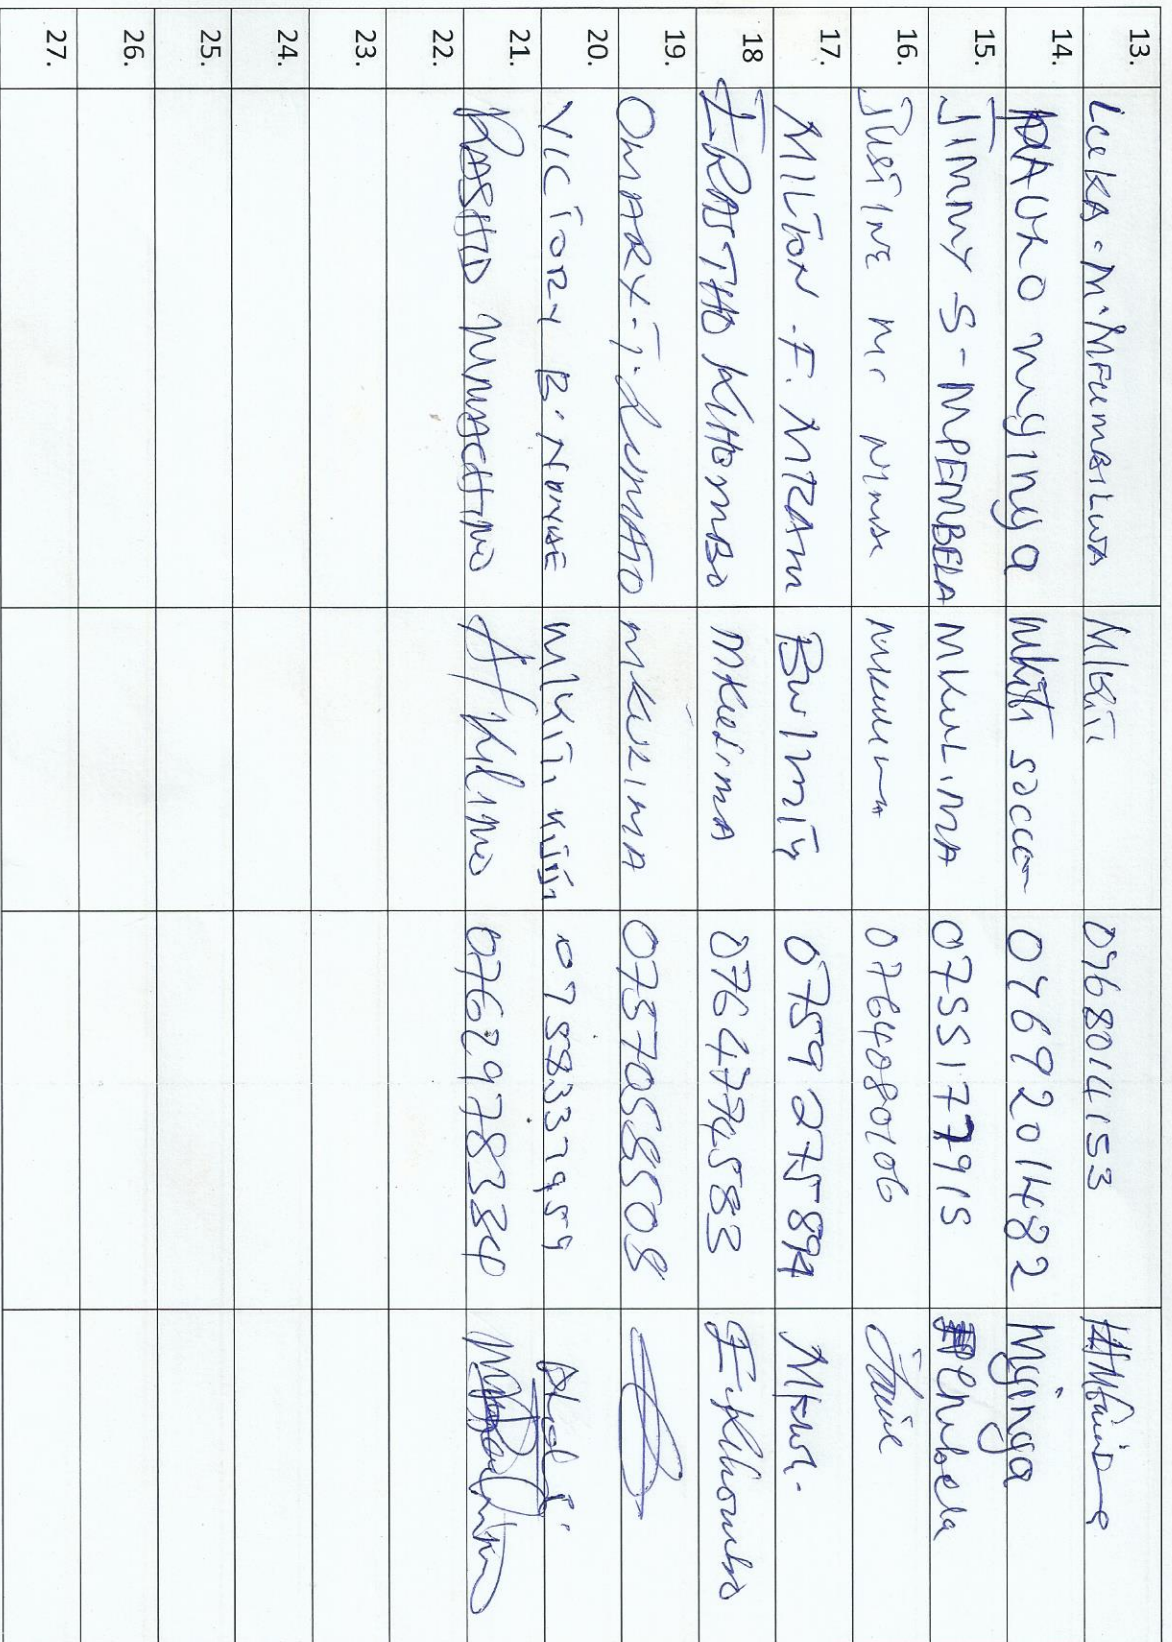 13. LUKA - M. MFUMBILWA MKITI 0768014153
14. PAULO Myinga Mkiti sacco 0769201482 Myinga
15. JIMMY S - MPEMBELA MKULIMA 0755177915 Pembela
16. Justine 0764080106
17. MILTON - F. 0759275894
18 ERASTHO KIHOMBO MKULIMA 0764794583 E. Kihombo
19. OMARY - J. mkulima 0757058508
20. VICTORY B. m/kiti kijiji 0758337959
21. RASHID A/Kilimo 0762978334
22.
23.
24.
25.
26.
27.